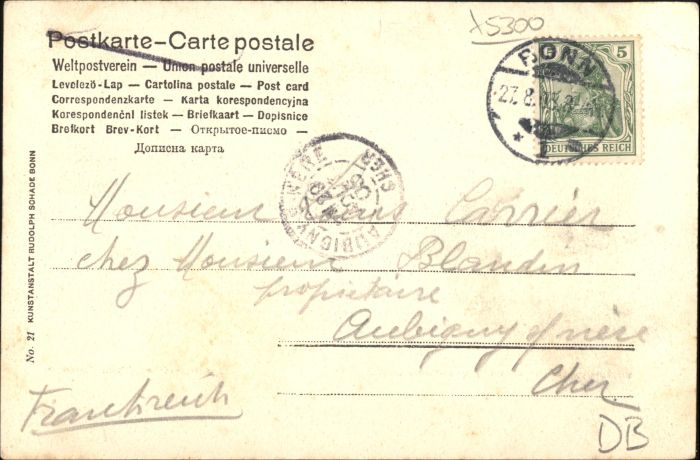 x5300
Postkarte – Carte postale
Weltpostverein — Union postale universelle
Levelezö-Lap — Cartolina postale — Post card
Correspondenzkarte — Karta korespondencyjna
Korespondenční lístek — Briefkaart — Dopisnice
Brefkort Brev-Kort — Открытое-письмо —
Дописна карта
5 5
DEUTSCHES REICH
BONN
27.8.
* 1
AUBIGNY NERE
CHER
Monsieur Carrier
chez Monsieur Blandin
propriétaire
Aubigny s/ nère
Cher
Frankreich
DB
No. 21 KUNSTANSTALT RUDOLPH SCHADE BONN